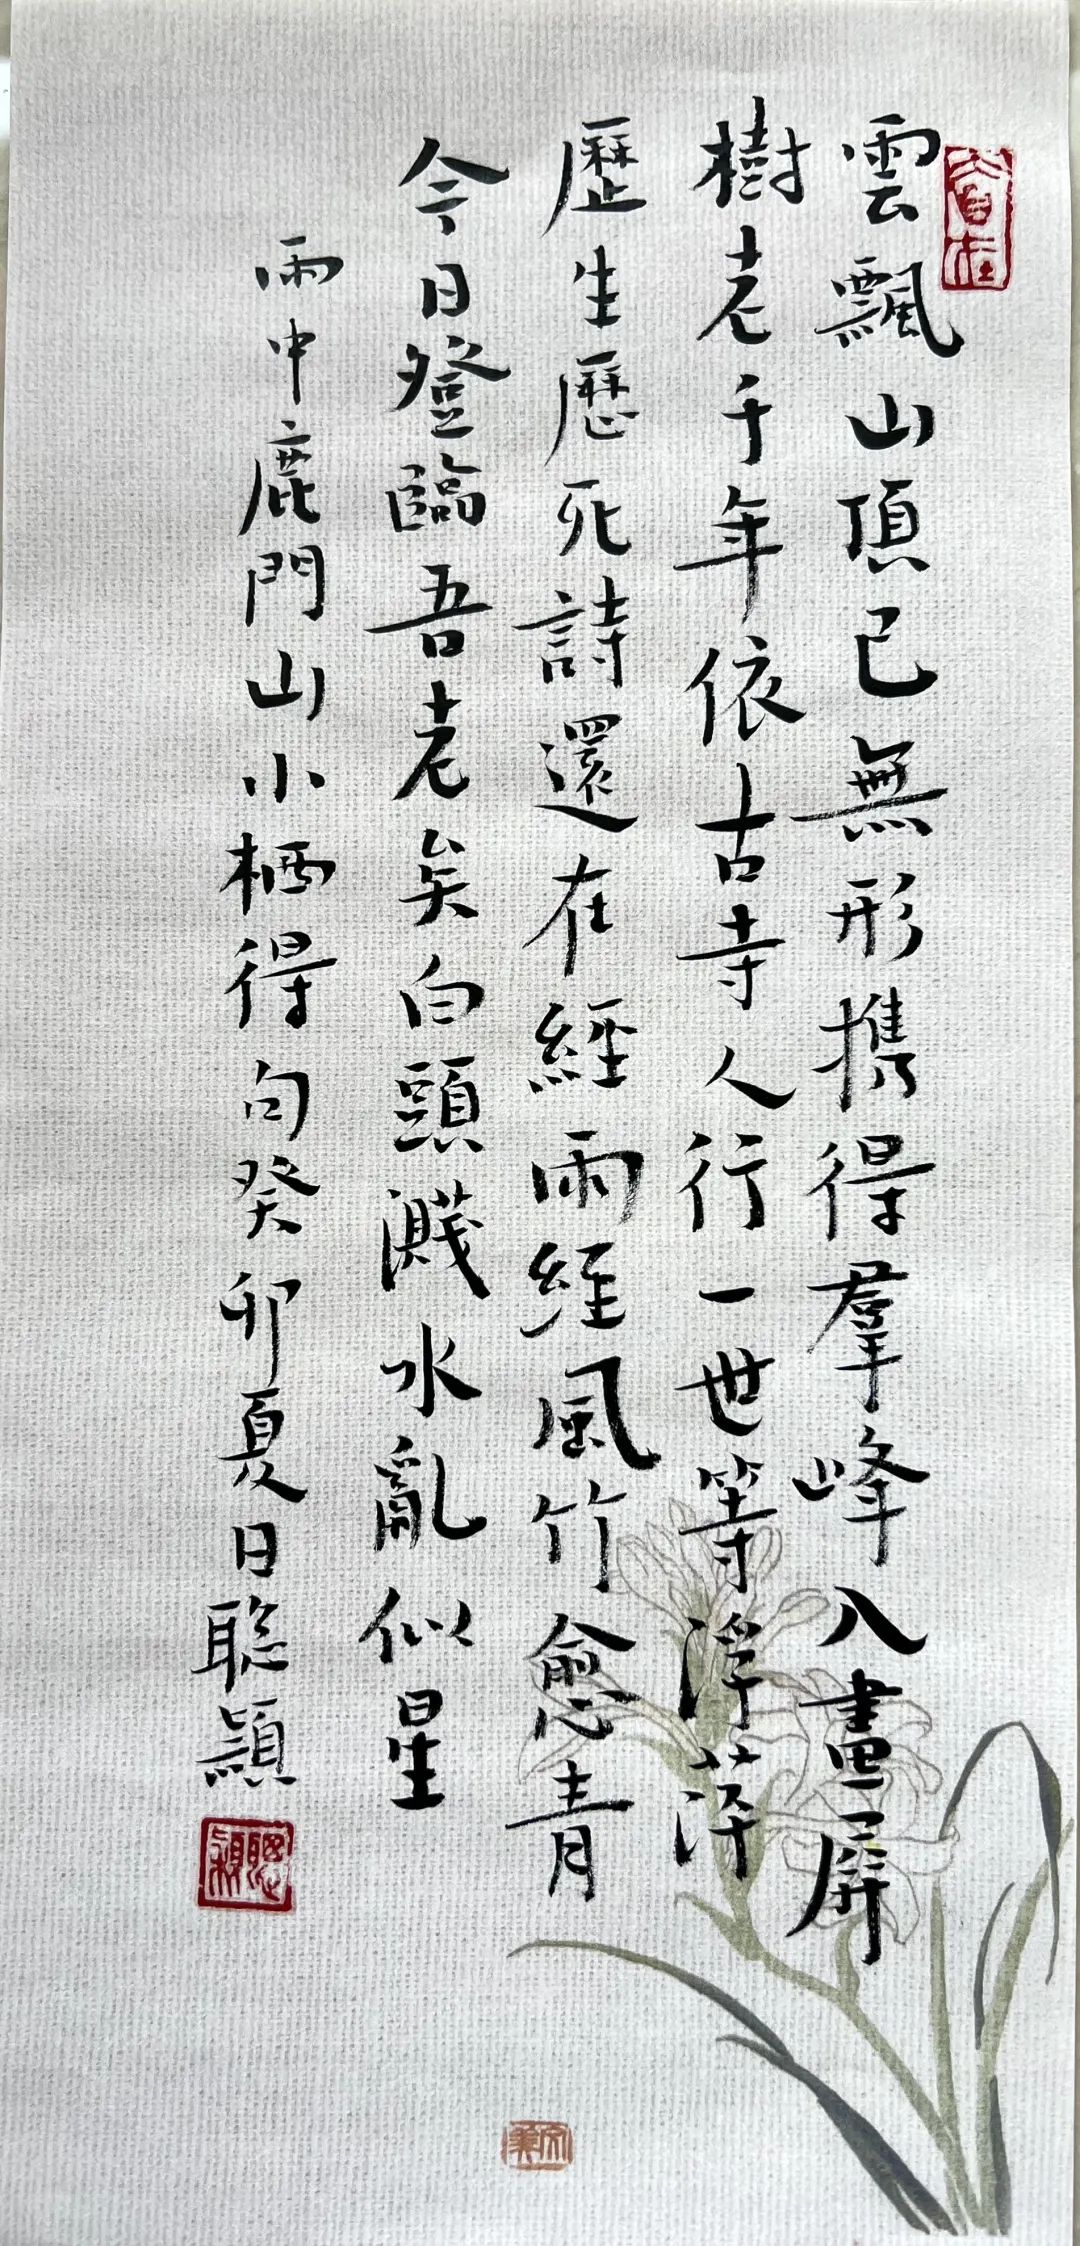 雲飄山頂已無形携得羣峰入畫屏
樹老千年依古寺人行一世等浮萍
歷生歷死詩還在經雨經風竹愈青
今日登臨吾老矣白頭濺水亂似星
雨中鹿門山小栖得句癸卯夏日聪穎
聰穎